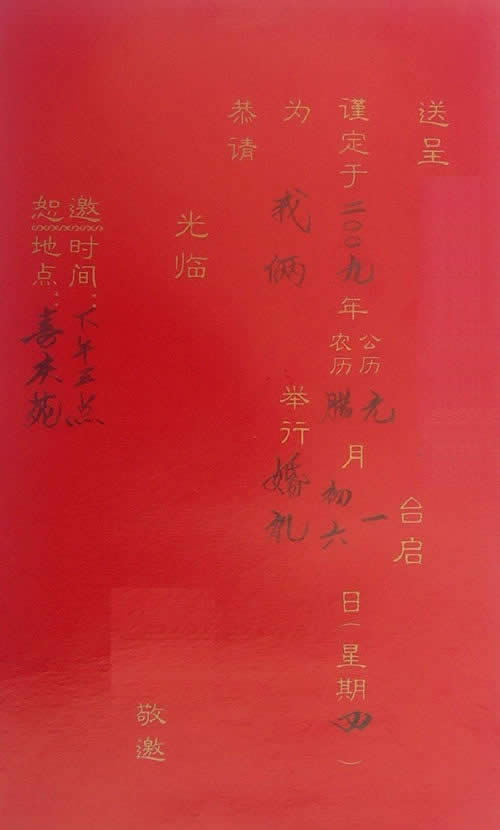 送呈
台启
谨定于二〇〇九年公历元月一日(星期四)
农历腊月初六
为我俩举行婚礼
恭请
光临
敬邀
邀时间:下午五点
恕地点:喜来苑